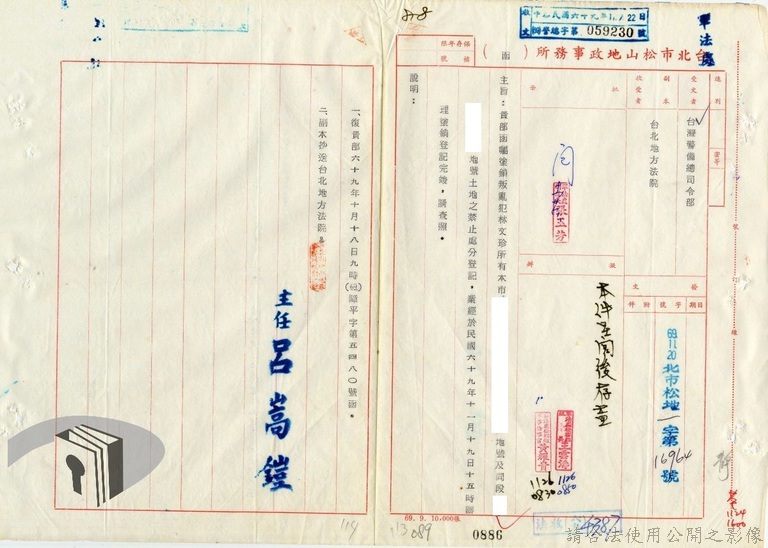 中華民國六十九年11月22日
收文
059230號
軍法處
台北市松山地政事務所（　）函
保存年限
檔號
速別
密等
受文者
台灣警備總司令部
副本
收受者
台北地方法院
批示
擬辦
發文
日期
字號
附件
69.11.20
北市松地一字第16964號
本件呈閱後存查
閱
主旨：貴部函囑塗銷叛亂犯林文珍所有本市
地號及同段
地號土地之禁止處分登記，業經於民國六十九年十一月十九日十五時辦
理塗銷登記完竣，請查照。
說明：
一、復貴部六十九年十月十八日九時
障平字第五四八〇號函。
二、副本抄送台北地方法院。
主任 呂嵩鎧
1126
0830
1126
0850
1124
1600
4387
69. 9. 10,000張
0886
114
113
089
請合法使用公開之影像